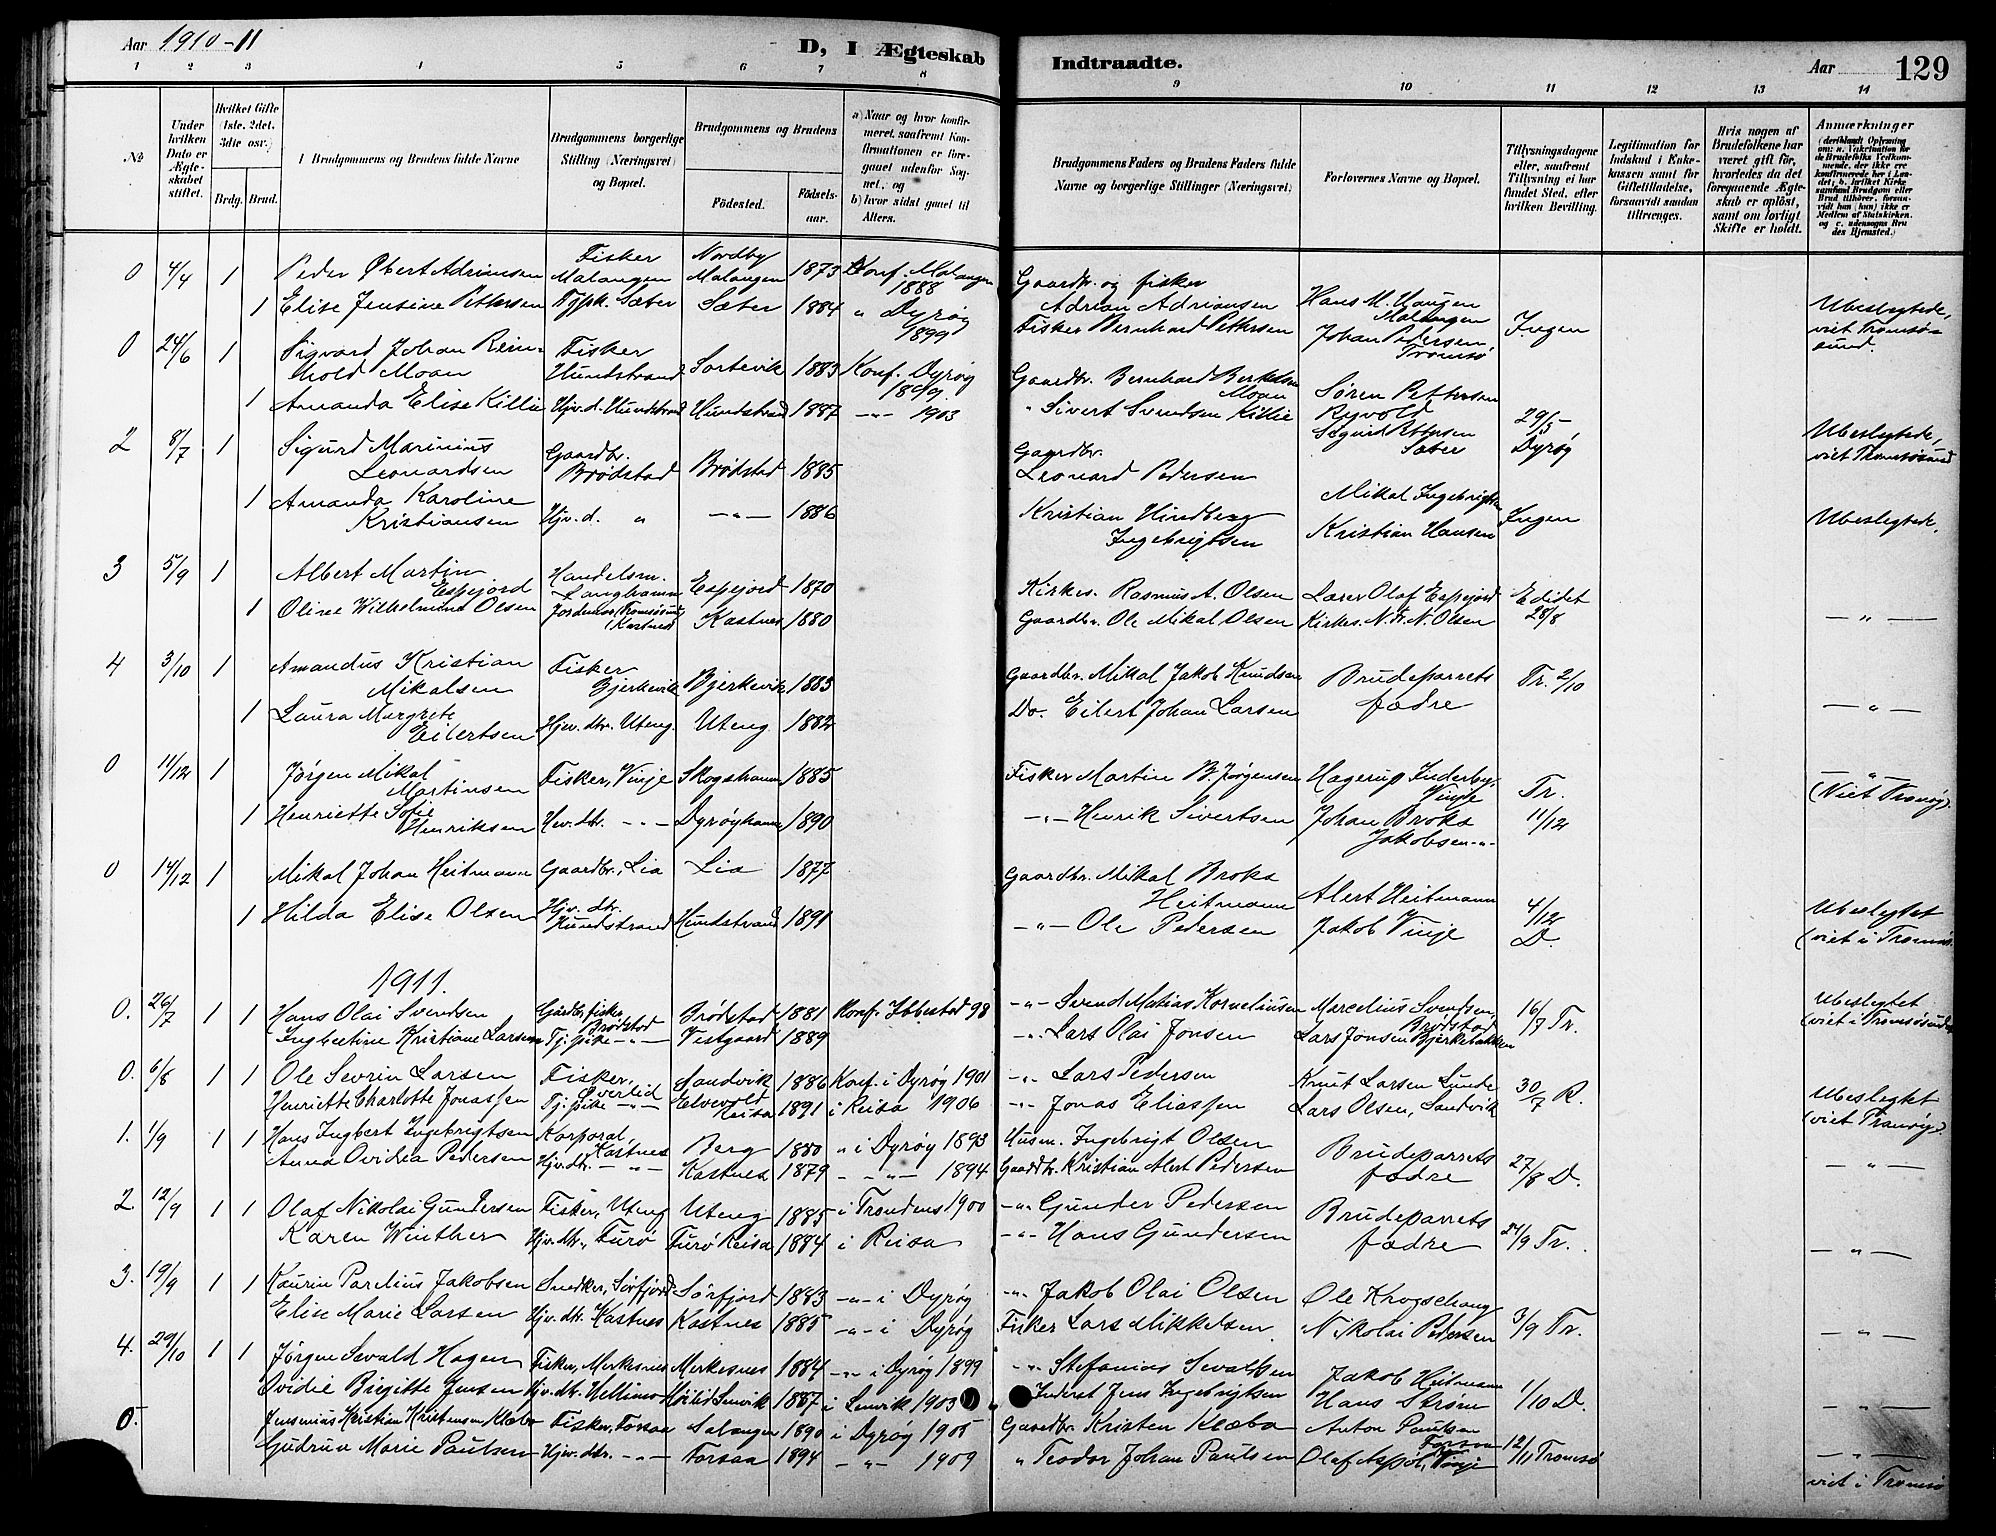 Aar 1910-11
D, I Ægteskab Indtraadte.
Aar 129
1 2 3 4 5 6 7 8 9 10 11 12 13 14
№
Under hvilken Dato er Ægteskabet stiftet.
Hvilket Gifte (1ste, 2det, 3die osv.)
Brdg. Brud.
Brudgommens og Brudens fulde Navne
Brudgommens borgerlige Stilling (Næringsvei) og Bopæl.
Brudgommens og Brudens
Fødested. Fødselsaar.
a) Naar og hvor konfirmeret, saafremt Konfirmationen er foregaaet udenfor Sognet, og
b) hvor sidst gaaet til Alters.
Brudgommens Faders og Brudens Faders fulde Navne og borgerlige Stillinger (Næringsvei)
Forlovernes Navne og Bopæl.
Tillysningsdagene eller, saafremt Tillysning ei har fundet Sted, efter hvilken Bevilling.
Legitimation for Indskud i Enkekassen samt for Giftetilladelse, forsaavidt saadan tiltrænges.
Hvis nogen af Brudefolkene har været gift før, hvorledes da det foregaaende Ægteskab er opløst, samt om lovligt Skifte er holdt.
Anmærkninger
0 4/4 1 Peder Obert Adriansen Fisker Malangen Nordby Malangen 1873 Konf. Malangen 1888 Gaardbr. og fisker Adrian Adriansen Hans M. Haugen Malangen
1 Elise Jensine Pettersen Tjpk. Sæter Sæter 1884 " Dyrøy 1899 Fisker Bernhard Pettersen Johan Pedersen, Tromsø Ingen Ubeslegtede, viet Tromsøsund.
0 24/6 1 Sigvard Johan Reinhold Moan Fisker Hundstrand Sortevik 1883 Konf. Dyrøy 1899 Gaardbr. Bernhard Moan Søren Pettersen Ryvold
1 Amanda Elise Killie Hjv. d. Hundstrand Hundstrand 1887 -"- 1903 " Sivert Svendsen Killie Sigurd Pettersen Sæter 29/5 - Dyrøy Ubeslegtede, viet Tromsøsund
2 8/7 1 Sigurd Marinius Leonardsen Gaardbr. Brødstad Brødstad 1885 Gaardbr. Leonard Pedersen Mikal Ingebrigtsen
1 Amanda Karoline Kristiansen Hjv. d. " -"- 1886 Kristian Hindberg Ingebrigtsen Kristian Hansen Ingen Ubeslegtede.
3 5/9 1 Albert Martin Espejord Handelsm. Langhamn Espejord 1870 Kirkes. Rasmus A. Olsen Lærer Olaf Espejord Edidet
1 Oline Wilhelmine Olsen Jordemor, Tromsøsund (Kastnes) Kastnes 1880 Gaardbr. Ole Mikal Olsen Kirkes. N. Kr. N. Olsen 28/8 -"-
4 3/10 1 Amandus Kristian Mikalsen Fisker Bjerkevik Bjerkevik 1883 Gaardbr. Mikal Jakob Knudsen Brudeparrets fædre Tr. 2/10
1 Laura Margrete Eilertsen Hjv. dtr. Uteng. Uteng 1882 Do. Eilert Johan Larsen -"-
0 11/12 1 Jørgen Mikal Martinsen Fisker, Vinje Skogshamn 1885 Fisker Martin B. Jørgensen Hagerup Inderby, Vinje Tr. -"- (Viet Tranøy).
1 Henriette Sofie Henriksen Hjv. dtr. -"- Dyrøyhamn 1890 -"- Henrik Sivertsen Johan Broks Jakobsen -"- 11/12
0 14/12 1 Mikal Johan Heitmann Gaardbr., Lia Lia 1877 Gaardbr. Mikal Broks Heitmann Alert Heitmann
1 Hilda Elise Olsen Hjv. dtr. Hundstrand Hundstrand 1891 -"- Ole Pedersen Jakob Vinje 4/12 D. Ubeslegtet (viet i Tromsø.
1911.
0. 26/7 1 1 Hans Olai Svendsen Gårdbr. fisker, Brødstad Brødstad 1881 Konf. Ibbestad 98 -"- Svend Matias Korneliusen Marcelius Svendsen, Brødstad 16/7 Tr. Ubeslegtet (viet i Tromsøsund
Ingbertine Kristiane Larsen Tj. pike -"- Vestgaard 1889 -"- Lars Olai Jonsen Lars Jonsen Bjerkebakken
0. 6/8 1 1 Ole Sevrin Larsen Fisker, Sandvik 1886 Konf. i Dyrøy 1901 -"- Lars Pedersen Knut Larsen Lunde 30/7 R. Ubeslegtet (viet Tranøy).
Henriette Charlotte Jonassen Tj. pike -"- Elvevold Reisa 1891 i Reisa 1906 -"- Jonas Eliassen Lars Olsen, Sandvik
1. 1/9 1 1 Hans Ingbert Ingebrigtsen Korporal, Kastnes Berg 1880 " i Dyrøy 1893 Husm. Ingebrigt Olsen Brudeparrets fædre 27/8 D. -"-
Anna Ovidia Pedersen Hjv. dtr. -"- Kastnes 1879 -"- 1894 Gaardbr. Kristian Alert Pedersen
2 12/9 1 1 Olaf Nikolai Gundersen Fisker, Uteng Uteng 1885 i Trondenes 1900 -"- Gunder Pedersen Brudeparrets fædre 24/9 Tr. -"-
Karen Winther Hjv. dtr., Furø Furø Reisa 1884 i Reisa -"- Hans Gundersen
3. 19/9 1 1 Kaurin Parelius Jakobsen Snedker, Sørfjord Sørfjord 1883 -"- i Dyrøy -"- Jakob Olai Olsen Ole Krogschaug 3/9 Tr. -"-
Elise Marie Larsen Hjv. dtr. Kastnes Kastnes 1885 -"- i Dyrøy Fisker Lars Mikkelsen Nikolai Pedersen
4. 29/10 1 1 Jørgen Sevald Hagen Fisker, Merkesnes Merkesnes 1884 -"- i Dyrøy 1899 -"- Stefanius Sevaldsen Jakob Heitmann 1/10 D. -"-
Ovidie Birgitte Jensen Hjv. dtr. Lenvik 1887 i Lenvik 1903 -"- Jens Ingebrigtsen Hans Strøm
0. Jensenius Kristian Kristensen Klæbo Fisker, Forsaa Salangen 1890 i Dyrøy 1905 Gaardbr. Kristen Klæbo Anton Paulsen Forsaa 12/11 Tromsø -"- viet i Tromsø
Gudrun Marie Paulsen Hjv. dtr. -"- Forsaa 1894 -"- 1909 " Teodor Johan Paulsen Olaf Aspøl, Vinje